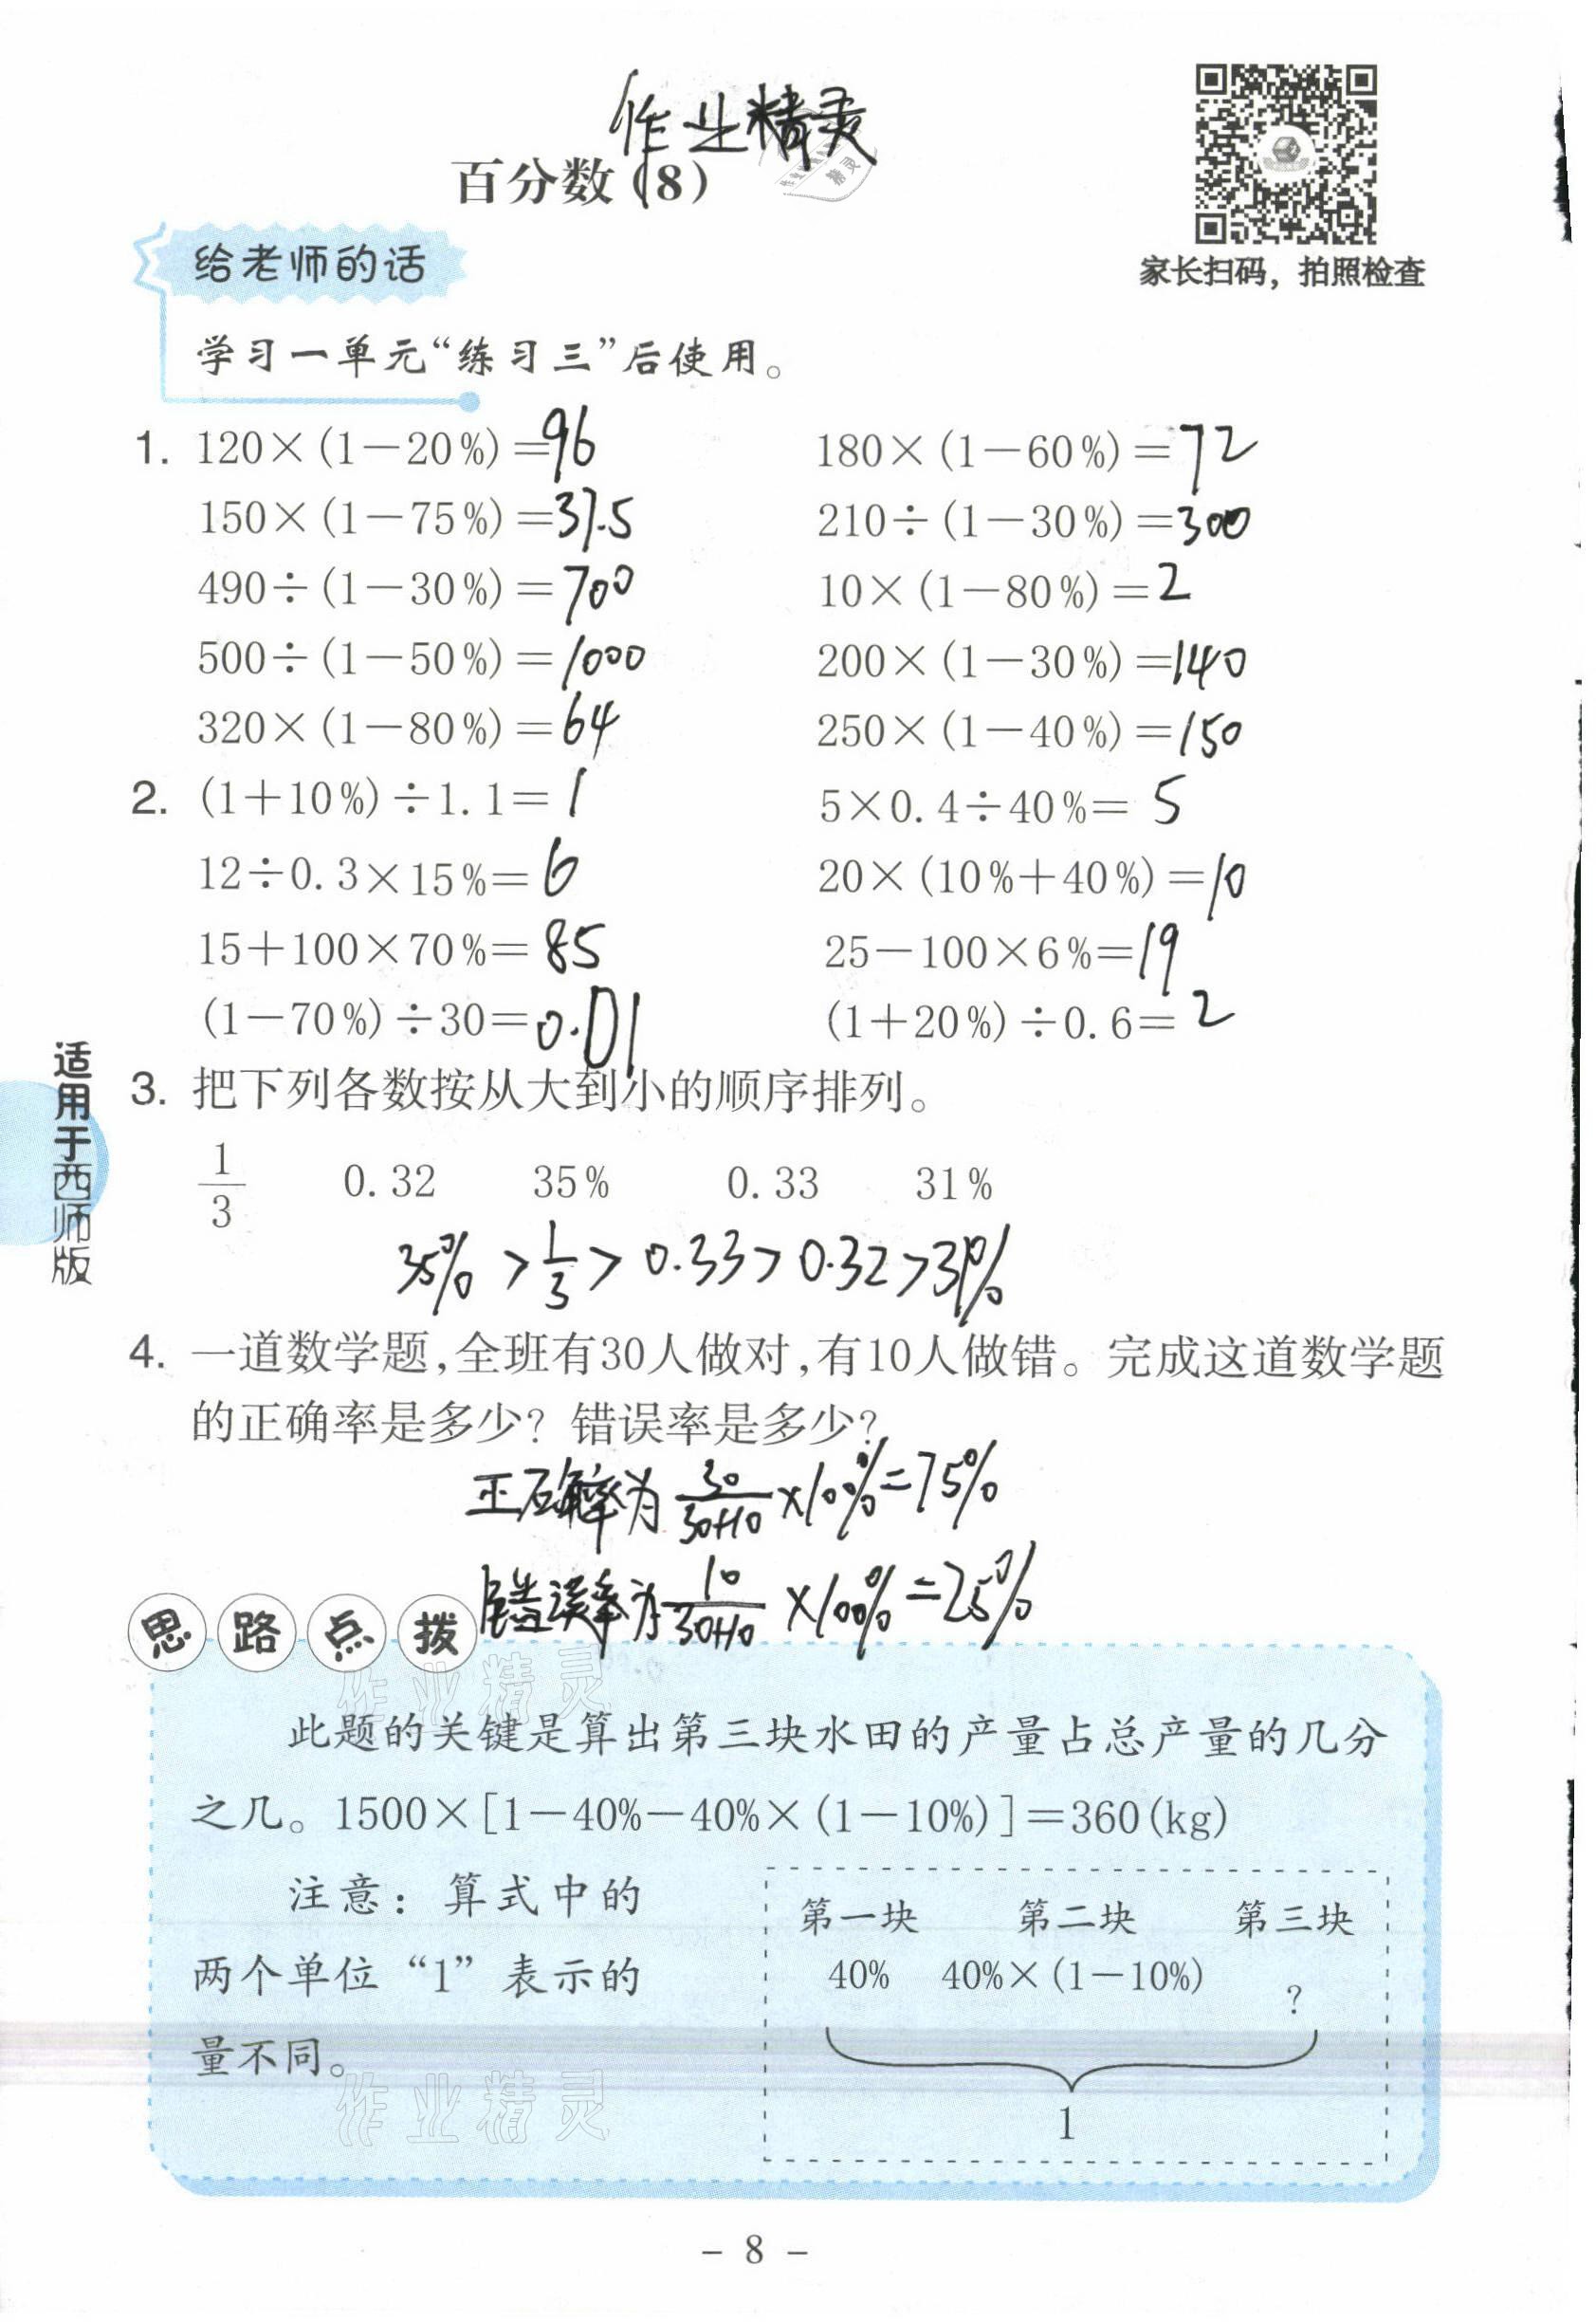 作业精灵
百分数(8)
家长扫码，拍照检查
给老师的话
学习一单元“练习三”后使用。
1. 120×(1－20%)＝96 180×(1－60%)＝72
150×(1－75%)＝37.5 210÷(1－30%)＝300
490÷(1－30%)＝700 10×(1－80%)＝2
500÷(1－50%)＝1000 200×(1－30%)＝140
320×(1－80%)＝64 250×(1－40%)＝150
2. (1＋10%)÷1.1＝1 5×0.4÷40%＝5
12÷0.3×15%＝6 20×(10%＋40%)＝10
15＋100×70%＝85 25－100×6%＝19
(1－70%)÷30＝0.01 (1＋20%)÷0.6＝2
3. 把下列各数按从大到小的顺序排列。
1/3 0.32 35% 0.33 31%
35%＞1/3＞0.33＞0.32＞31%
4. 一道数学题，全班有30人做对，有10人做错。完成这道数学题
的正确率是多少？错误率是多少？
正确率为30/(30+10)×100%＝75%
错误率为10/(30+10)×100%＝25%
思路点拨
作业精灵
此题的关键是算出第三块水田的产量占总产量的几分
之几。1500×[1－40%－40%×(1－10%)]＝360(kg)
注意：算式中的
两个单位“1”表示的
量不同。
第一块 第二块 第三块
40% 40%×(1－10%) ?
1
作业精灵
适用于西师版
– 8 –